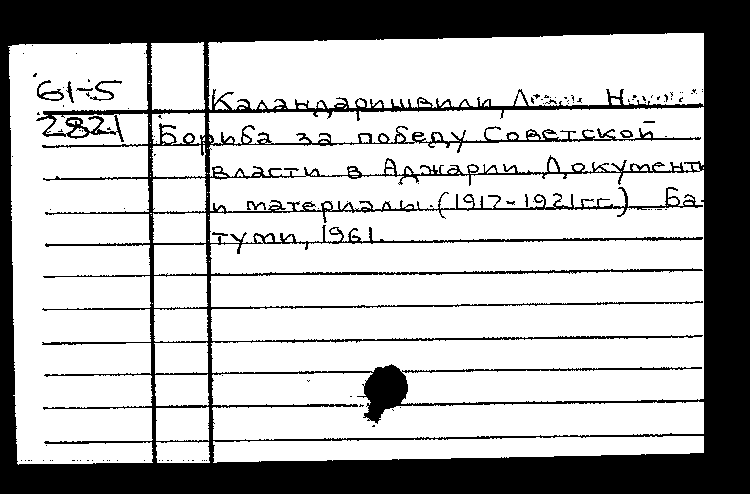 61-5
2821
Каландаришвили,
Борьба за победу Советской
власти в Аджарии. Документы
и материалы. (1917-1921гг.) Ба-
туми, 1961.